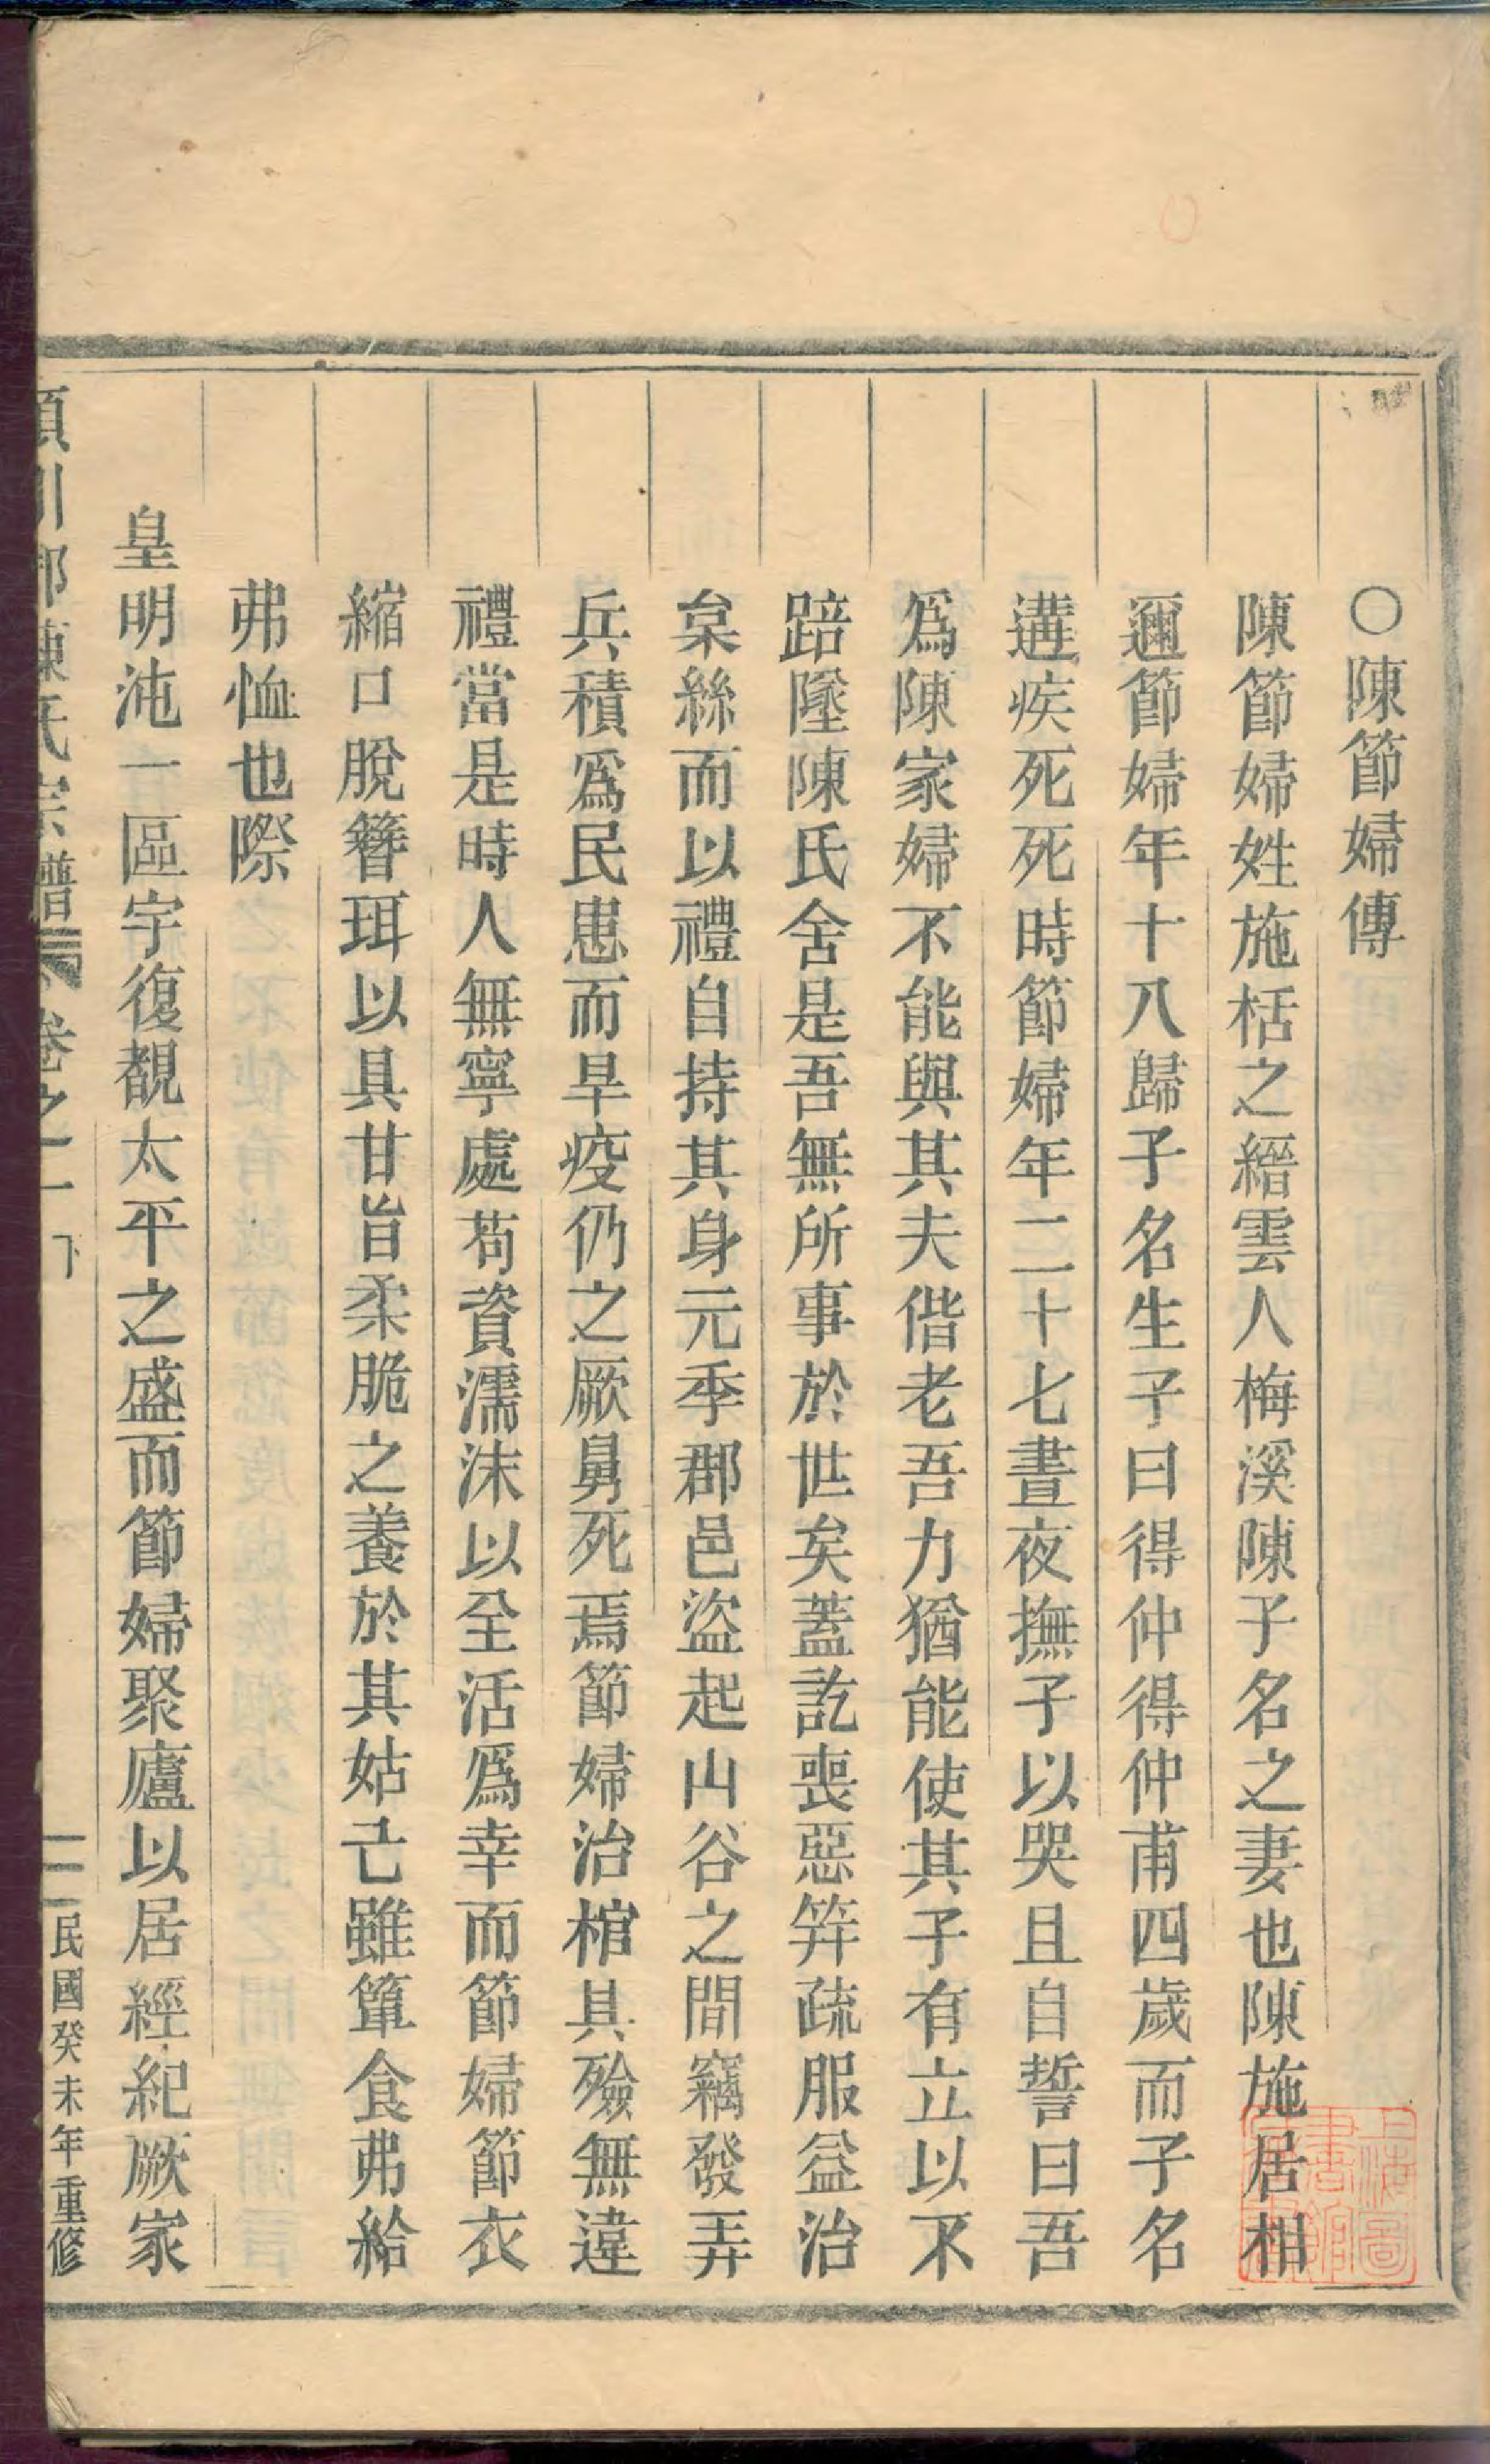 ○陳節婦傳
陳節婦姓施栝之縉雲人梅溪陳子名之妻也陳施居相
邇節婦年十八歸子名生子曰得仲得仲甫四歲而子名
遘疾死死時節婦年二十七晝夜撫子以哭且自誓曰吾
爲陳家婦不能與其夫偕老吾力猶能使其子有立以不
踣墜陳氏舍是吾無所事於世矣蓋訖喪惡笄疏服益治
枲絲而以禮自持其身元季郡邑盜起山谷之間竊發弄
兵積爲民患而旱疫仍之厥舅死焉節婦治棺具殮無違
禮當是時人無寧處苟資濡沫以全活爲幸而節婦節衣
縮口脫簪珥以具甘旨柔脆之養於其姑已雖簞食弗給
弗恤也際
皇明沌一區宇復覩太平之盛而節婦聚廬以居經紀厥家
潁川郡陳氏宗譜 卷之一下 二 民國癸未年重修
上海圖書館藏書